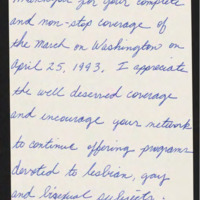 for your complete
and non-stop coverage of
the march on Washington on
April 25, 1993. I appreciate
the well deserved coverage
and encourage your network
to continue offering programs
devoted to lesbian, gay
and bisexual subjects.